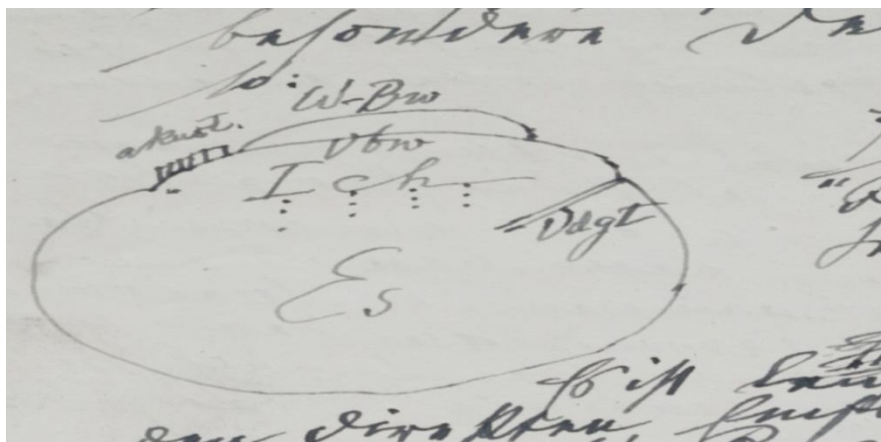 besondere
so:
W-Bw
akust.
Vbw
Ich
Vdgt
Es
Es ist
den direkten